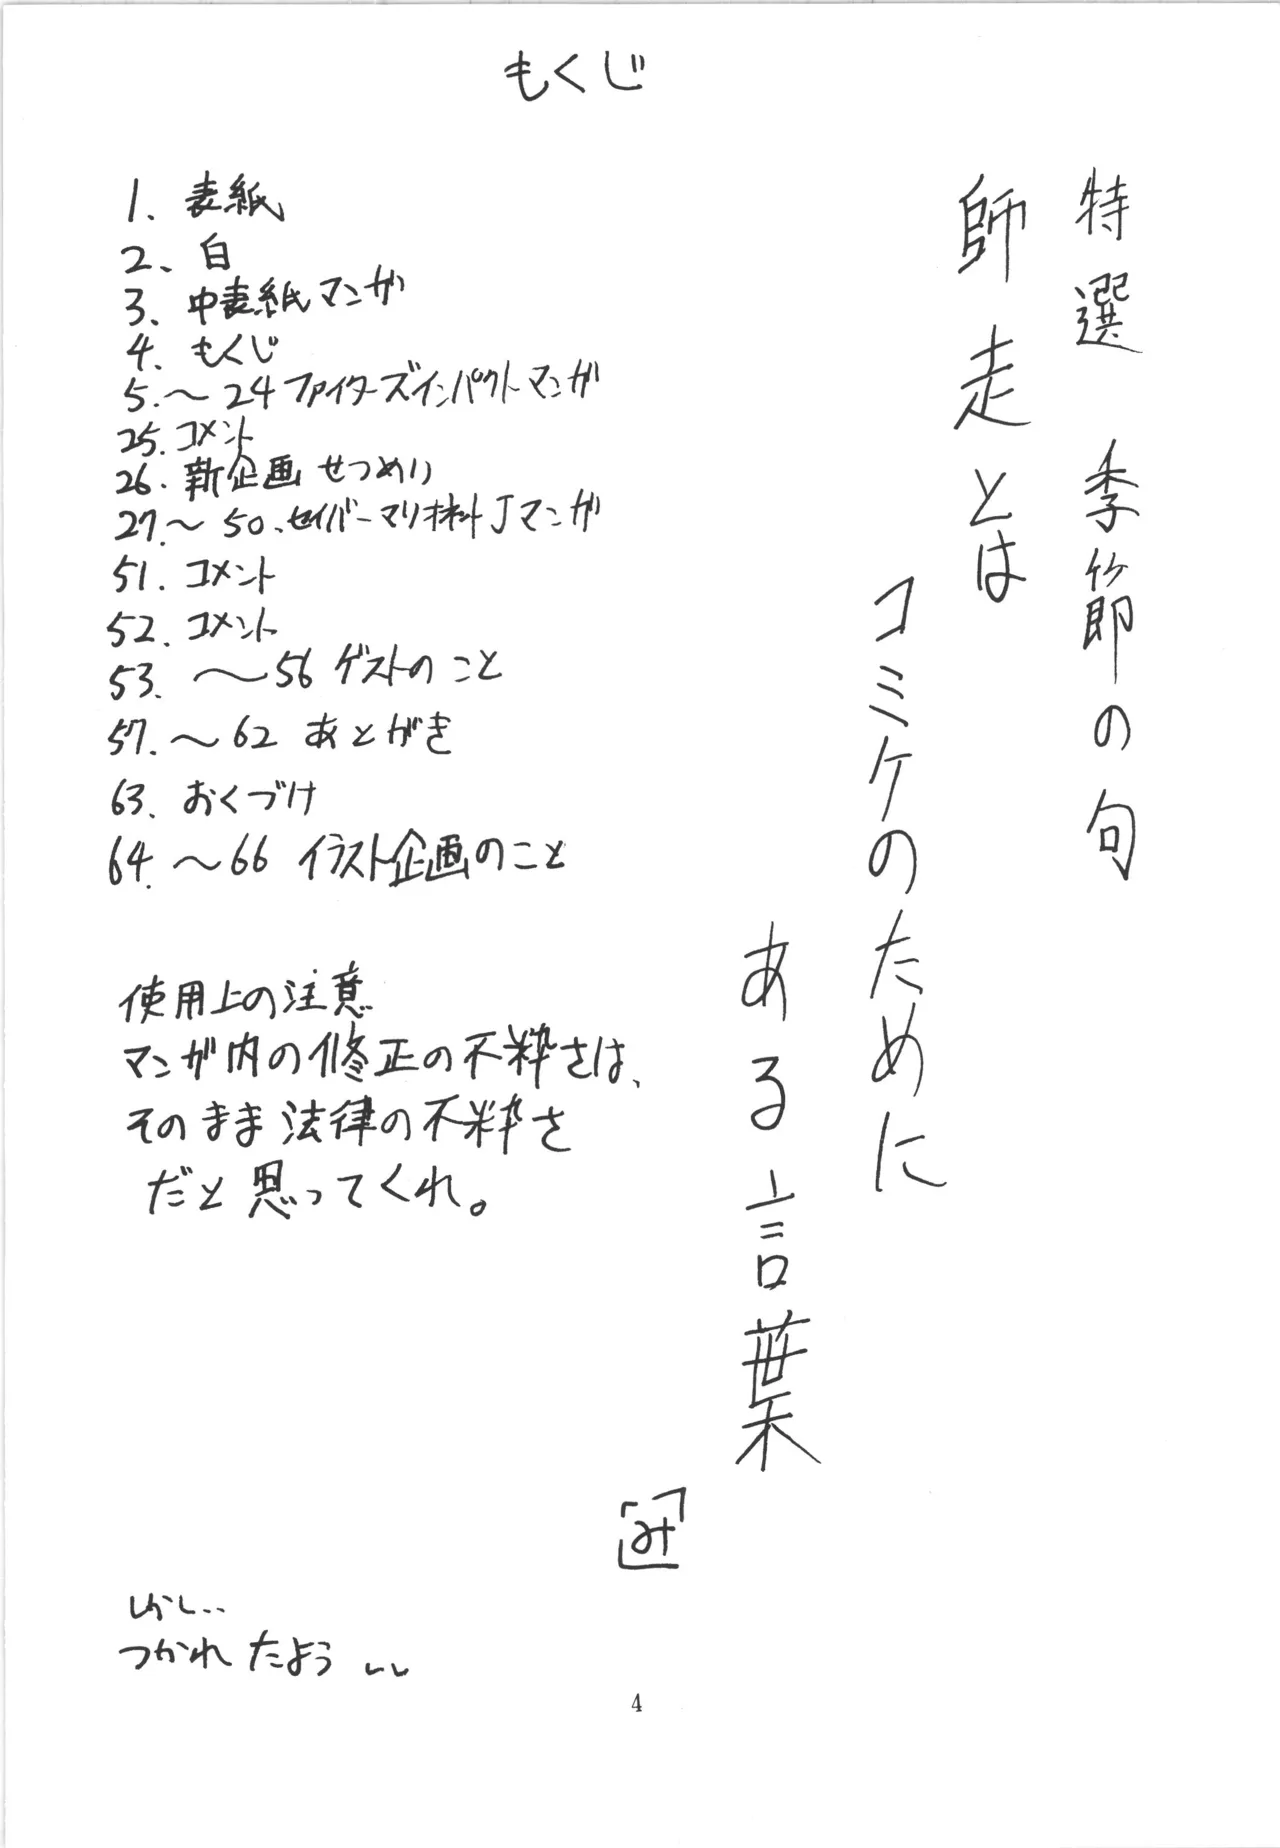 もくじ
特選 季節の句
師走とは
コミケのために
ある言葉
「み」
1. 表紙
2、白
3、中表紙マンガ
4. もくじ
5.〜24ファイターズインパクトマンガ
25.コメント
26.新企画 せつめい
27.〜50、セイバーマリオネットJマンガ
51. コメント
52. コメント
53. 〜56 ゲストのこと
57.〜62 あとがき
63. おくづけ
64.〜66 イラスト企画のこと
使用上の注意
マンガ内の修正の不粋さは、
そのまま法律の不粋さ
だと思ってくれ。
しかし‥
つかれたよう
4